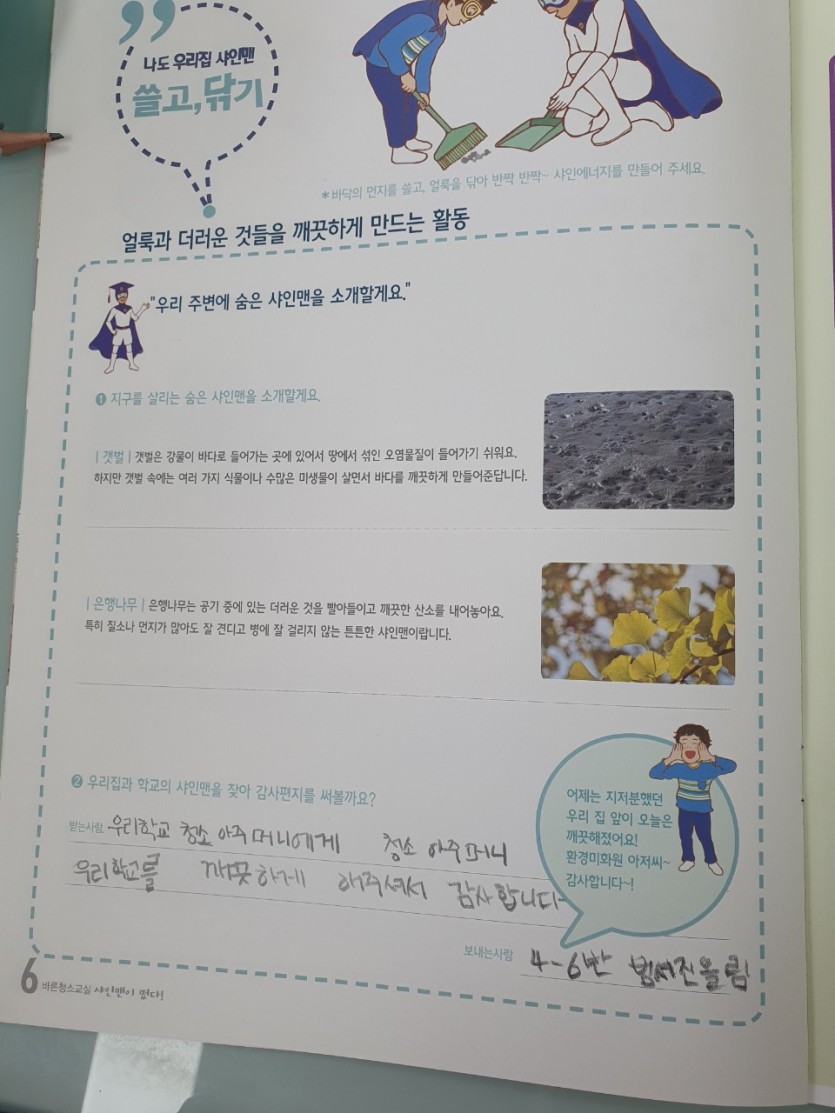 나도 우리집 샤인맨
쓸고, 닦기
*바닥의 먼지를 쓸고, 얼룩을 닦아 반짝 반짝~ 샤인에너지를 만들어 주세요.
얼룩과 더러운 것들을 깨끗하게 만드는 활동
"우리 주변에 숨은 샤인맨을 소개할게요."
❶ 지구를 살리는 숨은 샤인맨을 소개할게요.
| 갯벌 | 갯벌은 강물이 바다로 들어가는 곳에 있어서 땅에서 섞인 오염물질이 들어가기 쉬워요.
하지만 갯벌 속에는 여러 가지 식물이나 수많은 미생물이 살면서 바다를 깨끗하게 만들어준답니다.
| 은행나무 | 은행나무는 공기 중에 있는 더러운 것을 빨아들이고 깨끗한 산소를 내어놓아요.
특히 질소나 먼지가 많아도 잘 견디고 병에 잘 걸리지 않는 튼튼한 샤인맨이랍니다.
❷ 우리집과 학교의 샤인맨을 찾아 감사편지를 써볼까요?
받는사람 우리학교 청소 아주머니에게 청소 아주머니
우리학교를 깨끗하게 해주셔서 감사합니다~
어제는 지저분했던
우리 집 앞이 오늘은
깨끗해졌어요!
환경미화원 아저씨~
감사합니다~!
보내는사람 4-6반 범서진올림
6 바른청소교실 샤인맨이 떴다!